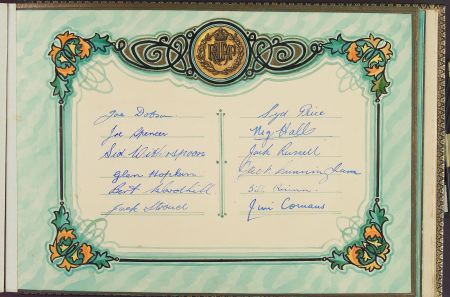 Joe Dobson
Joe Spencer
Sid Witherspoon
Glen Hopkins
Bert
Jack Stroud
Syd Price
Reg Halls
Jack Russell
Cunningham
Jim